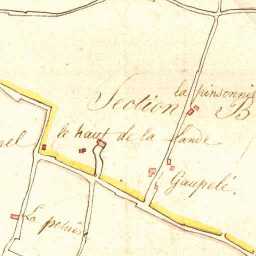 la pinsonnie
Section B
le haut de la Lande
nel
Gaupelé.
La